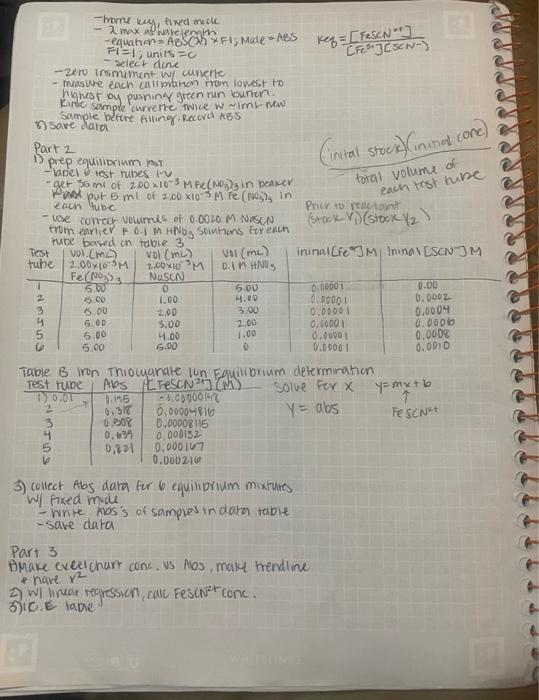 - home key, fixed mode
- λ max as wavelength
- equation = ABS(λ) * F1; Mode = ABS
F1=1; units = c
- select done
Keq = [FeSCN²⁺]
[Fe³⁺][SCN-]
- zero instrument w/ cuvette
- measure each calibration from lowest to
highest by pushing green run button.
Rinse sample cuvette twice w ~1mL new
sample before filling. Record ABS
8) save data
(inital stock)(ininal conc)
total volume of
each test tube
Part 2
1) prep equilibrium test
- label 6 test tubes 1-6
- get 35 ml of 2.00 x10⁻³ M Fe(NO₃)₃ in beaker
put 5 ml of 2.00 x10⁻³ M Fe(NO₃)₃ in
each tube
- use correct volumes of 0.0020 M NaSCN
from earlier & 0.1 M HNO₃ solutions for each
tube based on table 3
Prior to reactant
(stock V₁)(stock V2)
Test tube | vol. (mL) 2.00x10⁻³M Fe(NO₃)₃ | vol (mL) 2.00x10⁻³M NaSCN | vol (mL) 0.1M HNO₃ | ininal [Fe³⁺] M | Ininal [SCN-] M
1 5.00 0 5.00 0.00001 0.00
2 5.00 1.00 4.00 0.00001 0.0002
3 5.00 2.00 3.00 0.00001 0.0004
4 5.00 3.00 2.00 0.00001 0.0006
5 5.00 4.00 1.00 0.00001 0.0008
6 5.00 5.00 0 0.00001 0.0010
Table B Iron Thiocyanate Ion Equilibrium determination
Test tube | Abs | [FeSCN²⁺] (M) solve for x y=mx+b
1) 0.01 0.195 -1.00000148 y = abs FeSCN²⁺
2 0.378 0.00004816
3 0.508 0.00008115
4 0.639 0.000132
5 0.831 0.000167
6 0.000216
3) collect Abs data for 6 equilibrium mixtures
w/ fixed mode
- write Abs's of samples in data table
- save data
Part 3
1) Make excel chart conc. vs Abs, make trendline
+ have r²
2) w/ linear regression, calc FeSCN²⁺ conc.
3) I.C.E table
WHITELINES